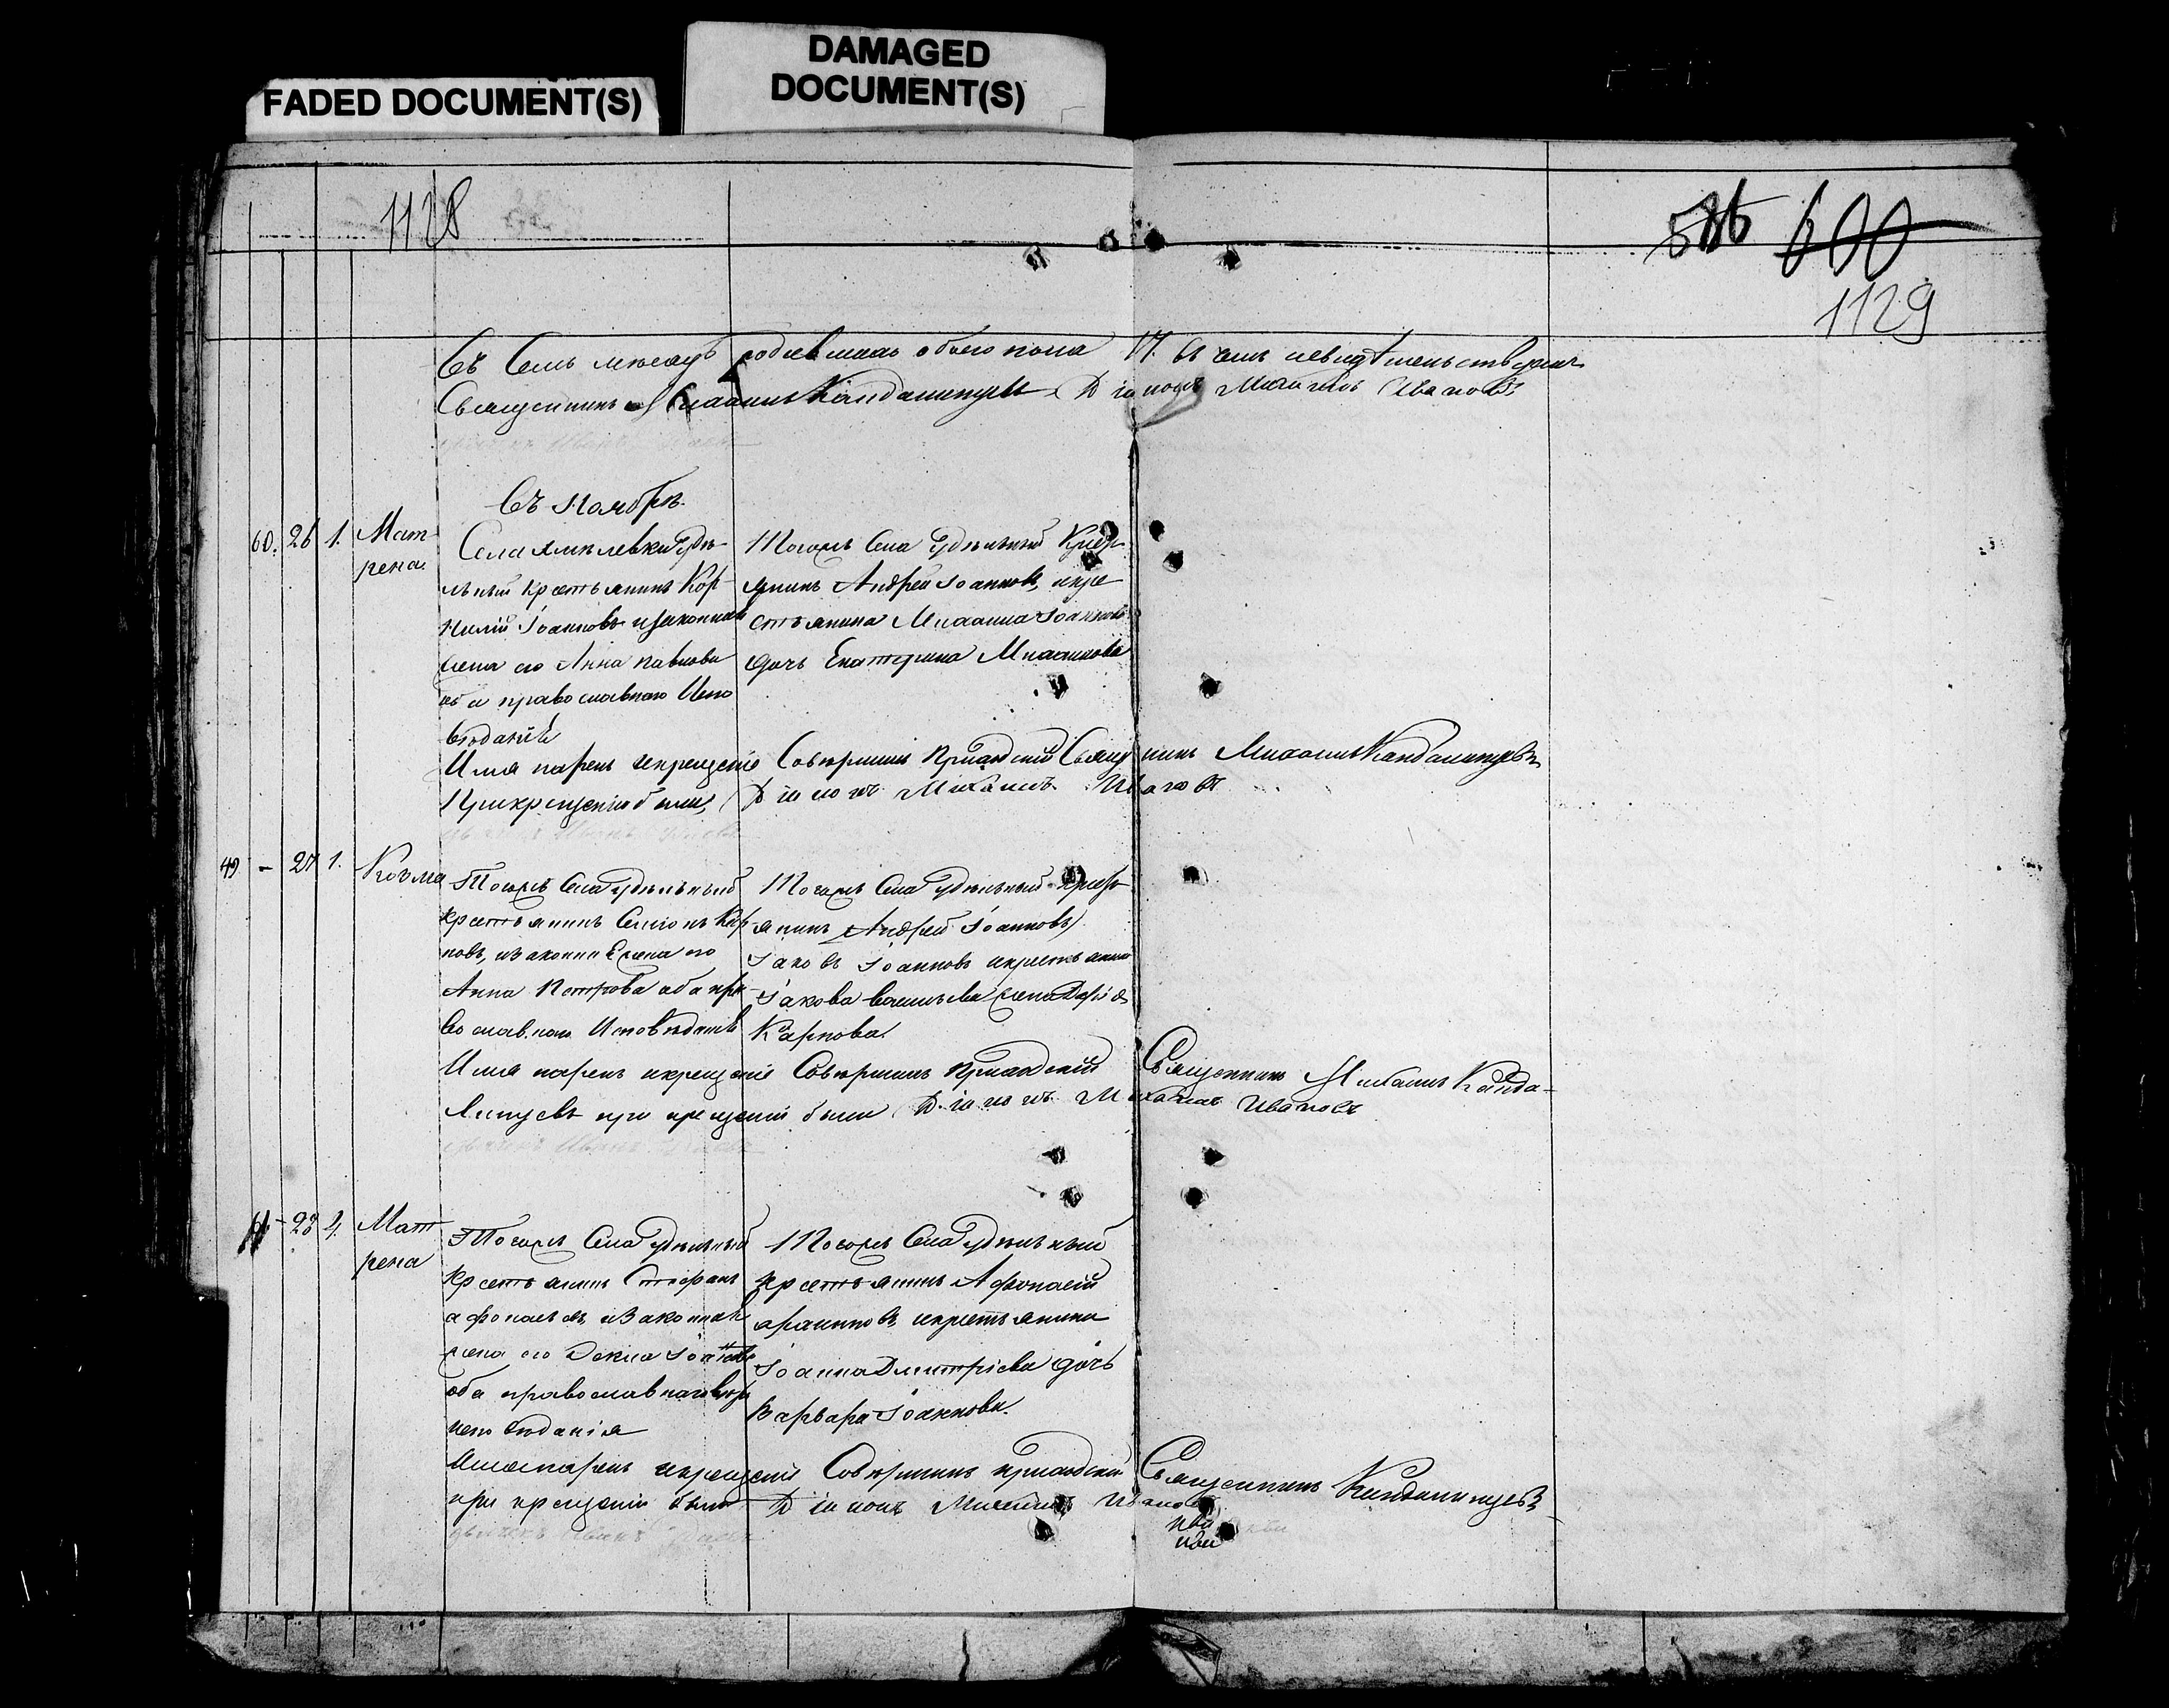 FADED DOCUMENT(S)
DAMAGED
DOCUMENT(S)
1128
600
1129
Въ Семъ месяцъ родившихъ обоего пола 17. въ чемъ
Священникъ Михаилъ Кандалинцевъ Діаконъ Михаилъ Ивановъ
Въ Ноябрѣ.
60. 26 1. Мат
рена.
Села Удѣ
льный Крестьянинъ Кор
нилій Іоанновъ изаконная
жена его Анна Павлова
оба православнаго Испо
вѣданія
Тогожъ Села Удѣльный Крест
янинъ Андрей Іоанновъ, икре
стьянина Михаила Іоаннова
дочь Екатерина Михаилова
Имя наречъ икрещеніе Совершилъ Приходскій Священникъ Михаилъ Кандалинцевъ
Прикрещеніи были, Діаконъ Михаилъ Ивановъ
49 - 27 1. Козма
Тогожъ Села Удѣльный
Крестьянинъ Симіонъ Кар
повъ, изаконная жена его
Анна Петрова оба пра
вославнаго Исповѣданія
Тогожъ Села Удѣльный крест
янинъ Андрей Іоанновъ
Іаковъ Іоанновъ икрестьянина
Іакова Васильева жена Дарія
Карпова.
Имя наречъ икрещеніе Совершилъ Приходскій Священникъ Михаилъ Канда-
линцевъ при крещеніи были Діаконъ Михаилъ Ивановъ
- 28 4. Мат
рена
Тогожъ Села Удѣльный
Крестьянинъ Стефанъ
Афонасьевъ изаконная
жена его Текла Іоаннова
оба православнаго
исповѣданія
Тогожъ Села Удѣльный
Крестьянинъ Афонасій
икрестьянина
Іоанна Дмитріева дочь
Варвара Іоаннова.
Имя наречъ икрещеніе Совершилъ приходскій Священникъ Кандалинцевъ
при крещеніи были Діаконъ Михаилъ Ивановъ